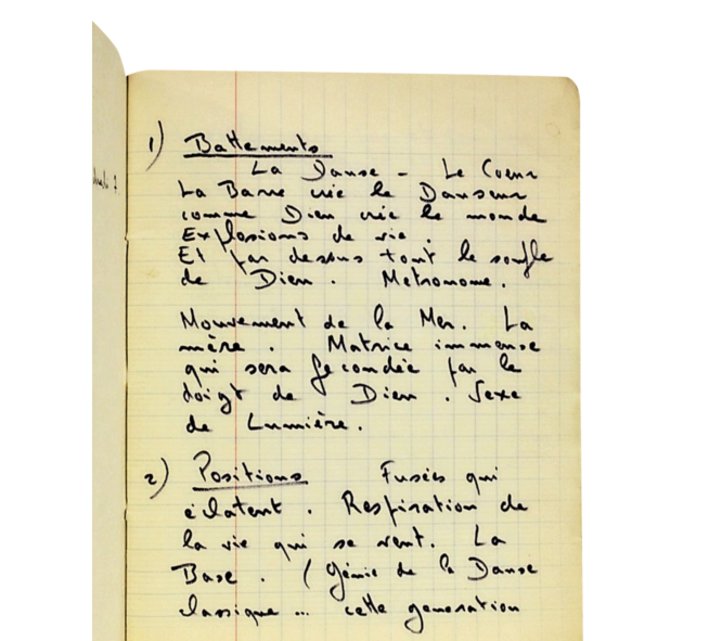 1) Battements
La Danse - Le Coeur
La Barre crée le Danseur
comme Dieu crée le monde
Explosions de vie.
Et par dessus tout le souffle
de Dieu. Metronome.
Mouvement de la Mer. La
mère. Matrice immense
qui sera fécondée par le
doigt de Dieu. Sexe
de Lumière.
2) Positions Fusées qui
éclatent. Respiration de
la vie qui se vent. La
Base. (Génie de la Danse
classique... cette generation